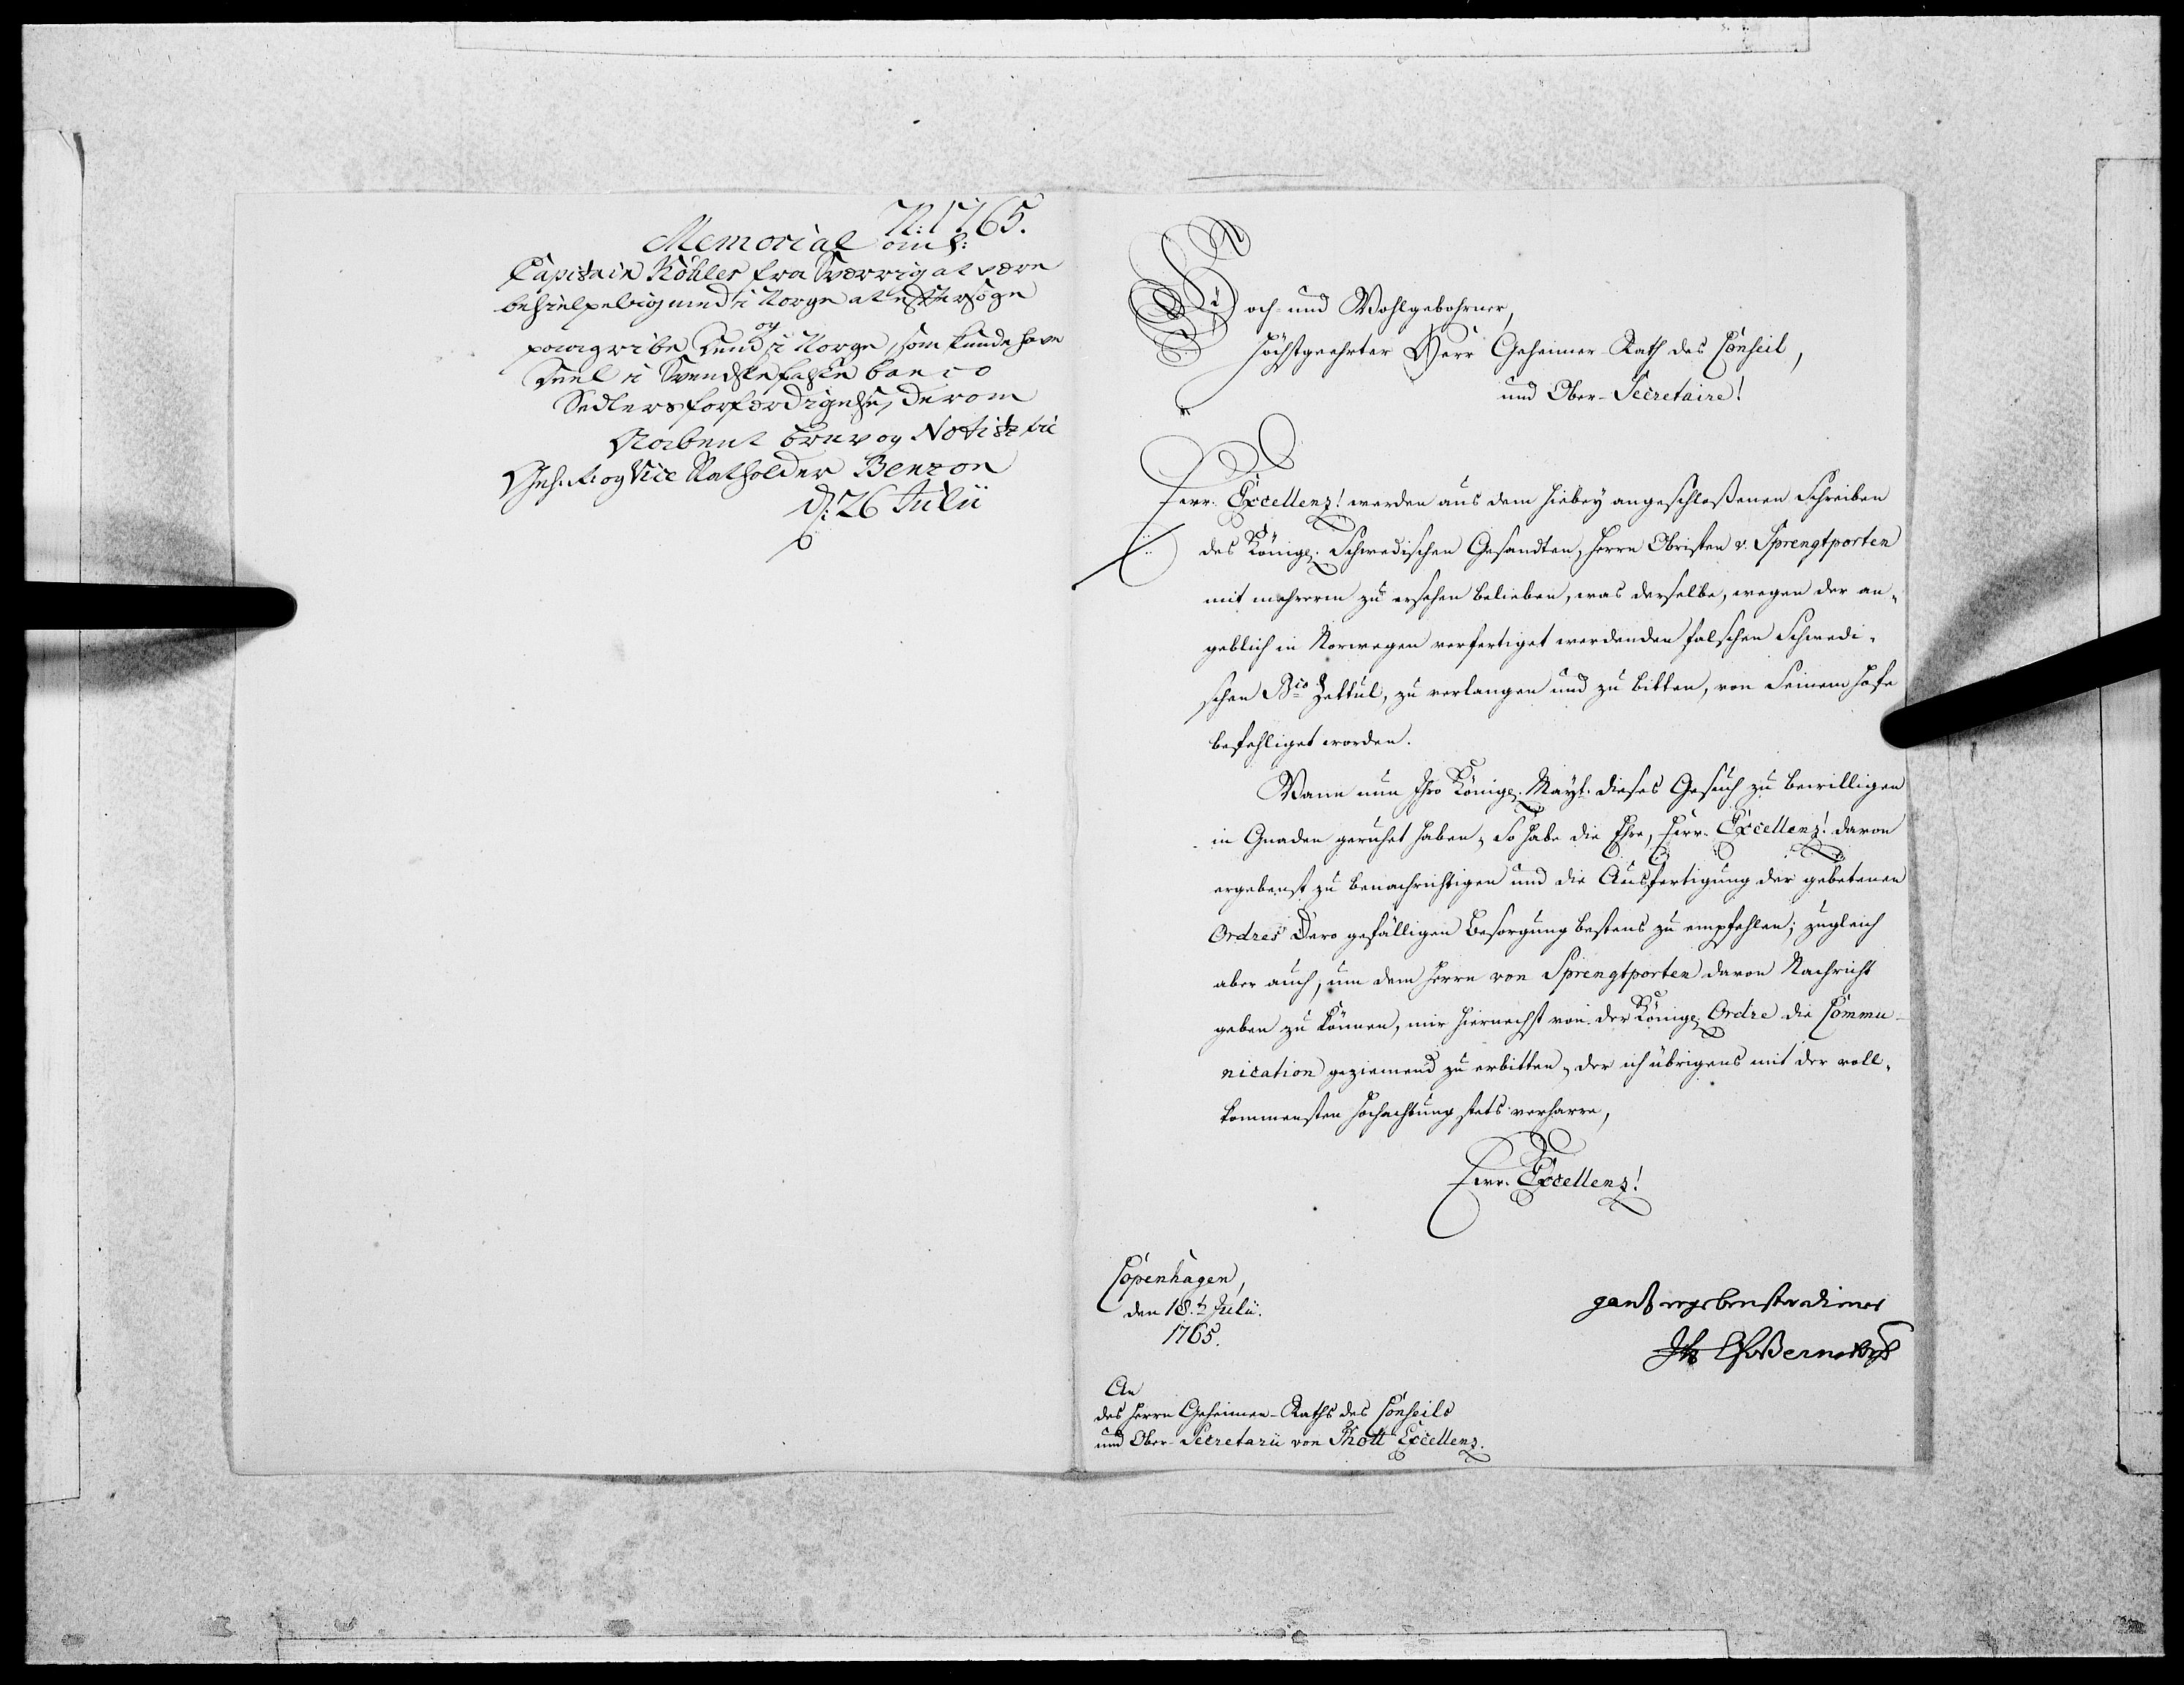 N: 1765.
Memorial om S:
Capitain Köhler fra Sverrig at være
behielpelig med i Norge at eftersøge
og
paagribe dem i Norge, som kunde have
Deel i Svendske falske banco
Sedlers forfærdigelse, derom
Aabent brev og Notiste til
Geh: R. og Vice Statholder Benzon
D: 26 Julii
Hoch- und Wohlgebohrner,
Höchstgeehrter Herr Geheimer-Rath des Conseil,
und Ober-Secretaire!
Ewr. Excellenz! werden aus dem hiebey angeschloßenen Schreiben
des Königl. Schwedischen Gesandten, Herrn Obristen v. Sprengtporten
mit mehrerm zu ersehen belieben, was derselbe, wegen der an-
geblich in Norwegen verfertiget werdenden falschen Schwedi-
schen Bco Zettul, zu verlangen und zu bitten, von Seinem Hofe
befehliget worden.
Wann nun Ihro Königl. Mayt. dieses Gesuch zu bewilligen
in Gnaden geruhet haben; So habe die Ehre, Ewr. Excellenz! davon
ergebenst zu benachrichtigen und die Ausfertigung der gebetenen
Ordres Dero gefälligen Besorgung bestens zu empfehlen; zugleich
aber auch, um dem Herrn von Sprengtporten davon Nachricht
geben zu können, mir hiernechst von der Königl. Ordre die Commu-
nication geziemend zu erbitten, der ich übrigens mit der voll-
kommensten Hochachtung stets verharre,
Ewr. Excellenz!
Copenhagen,
den 18.t Julii.
1765.
gantz ergebenster diener
JHEvBernstorff
An
des Herrn Geheimen-Raths des Conseils
und Ober-Secretarii von Thott Excellenz.